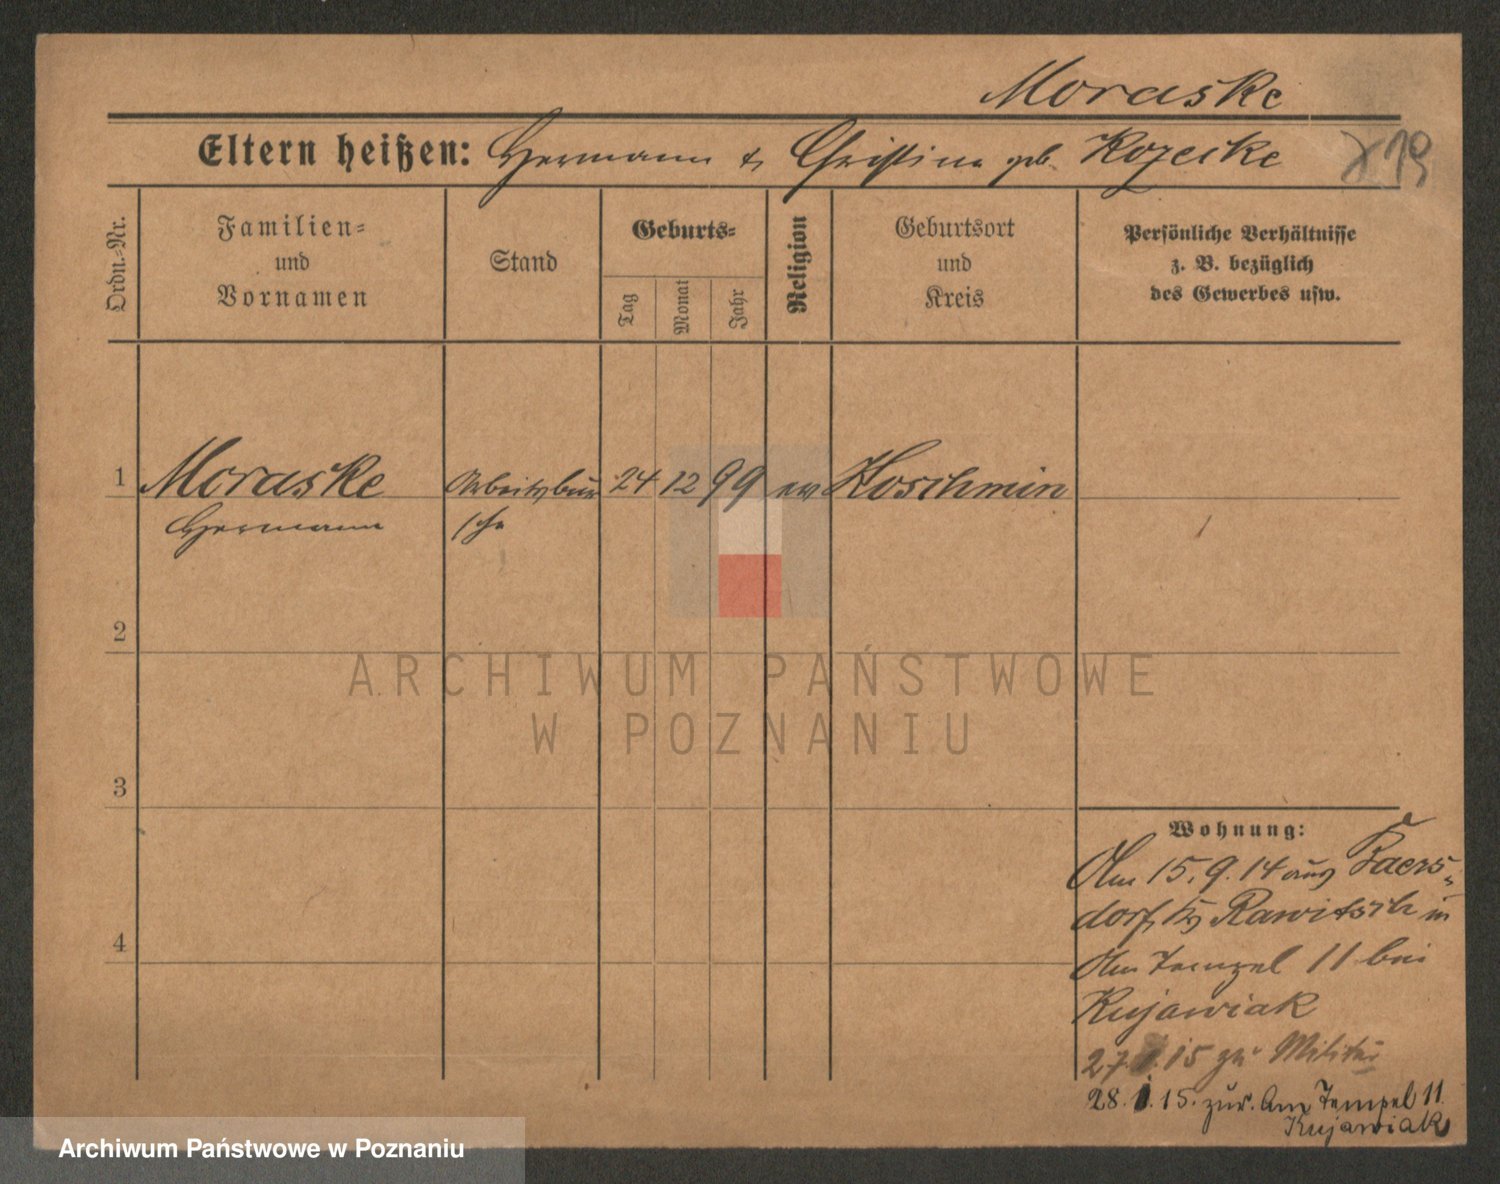 Moraske
Eltern heißen: Hermann & Christina geb. Kozecke
Ordn.-Nr.
Familien-
und
Vornamen
Stand
Geburts-
Tag
Monat
Jahr
Religion
Geburtsort
und
Kreis
Persönliche Verhältnisse
z. B. bezüglich
des Gewerbes usw.
1 Moraske Arbeitsbur 24 12 99 ev Koschmin
Hermann sche
2
3
4
Wohnung:
Am 15.9.14 aus
dorf, Rawitsch in
Am Tempel 11 bei
Kujawiak
15 zu Militär
28. 15. zur. Am Tempel 11.
Kujawiak
ARCHIWUM PAŃSTWOWE
W POZNANIU
Archiwum Państwowe w Poznaniu